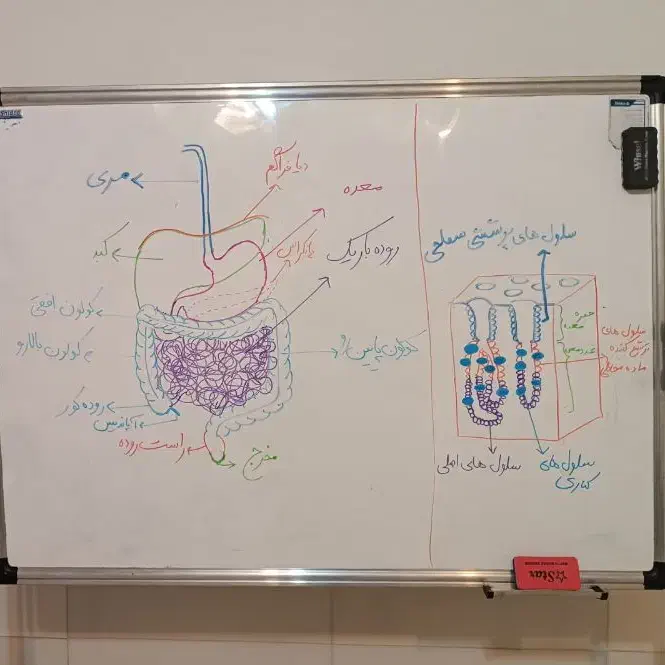 دیافراگم
معده
مری
پانکراس
روده باریک
کبد
کولون افقی
کولون بالارو
کولون پایین رو
روده کور
آپاندیس
راست روده
مخرج
سلول های پوششی سطحی
حفره
معده
غده معده
سلول های
ترشح کننده
ماده مخاطی
سلول های اصلی
سلول های
کناری
Star